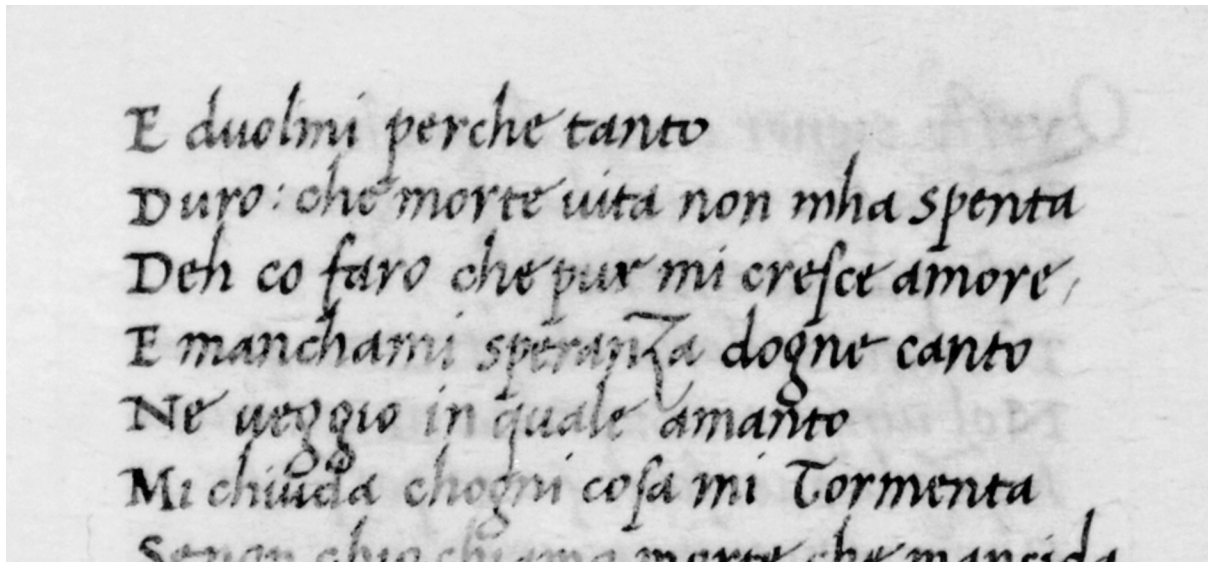 E duolmi perche tanto
Duro: che morte vita non mha spenta
Deh co faro che pur mi creſce amore,
E manchami speranza dogne canto
Ne ueggio in quale amanto
Mi chiuda chogni coſa mi Tormenta
Senon chio chiama morte che mancida